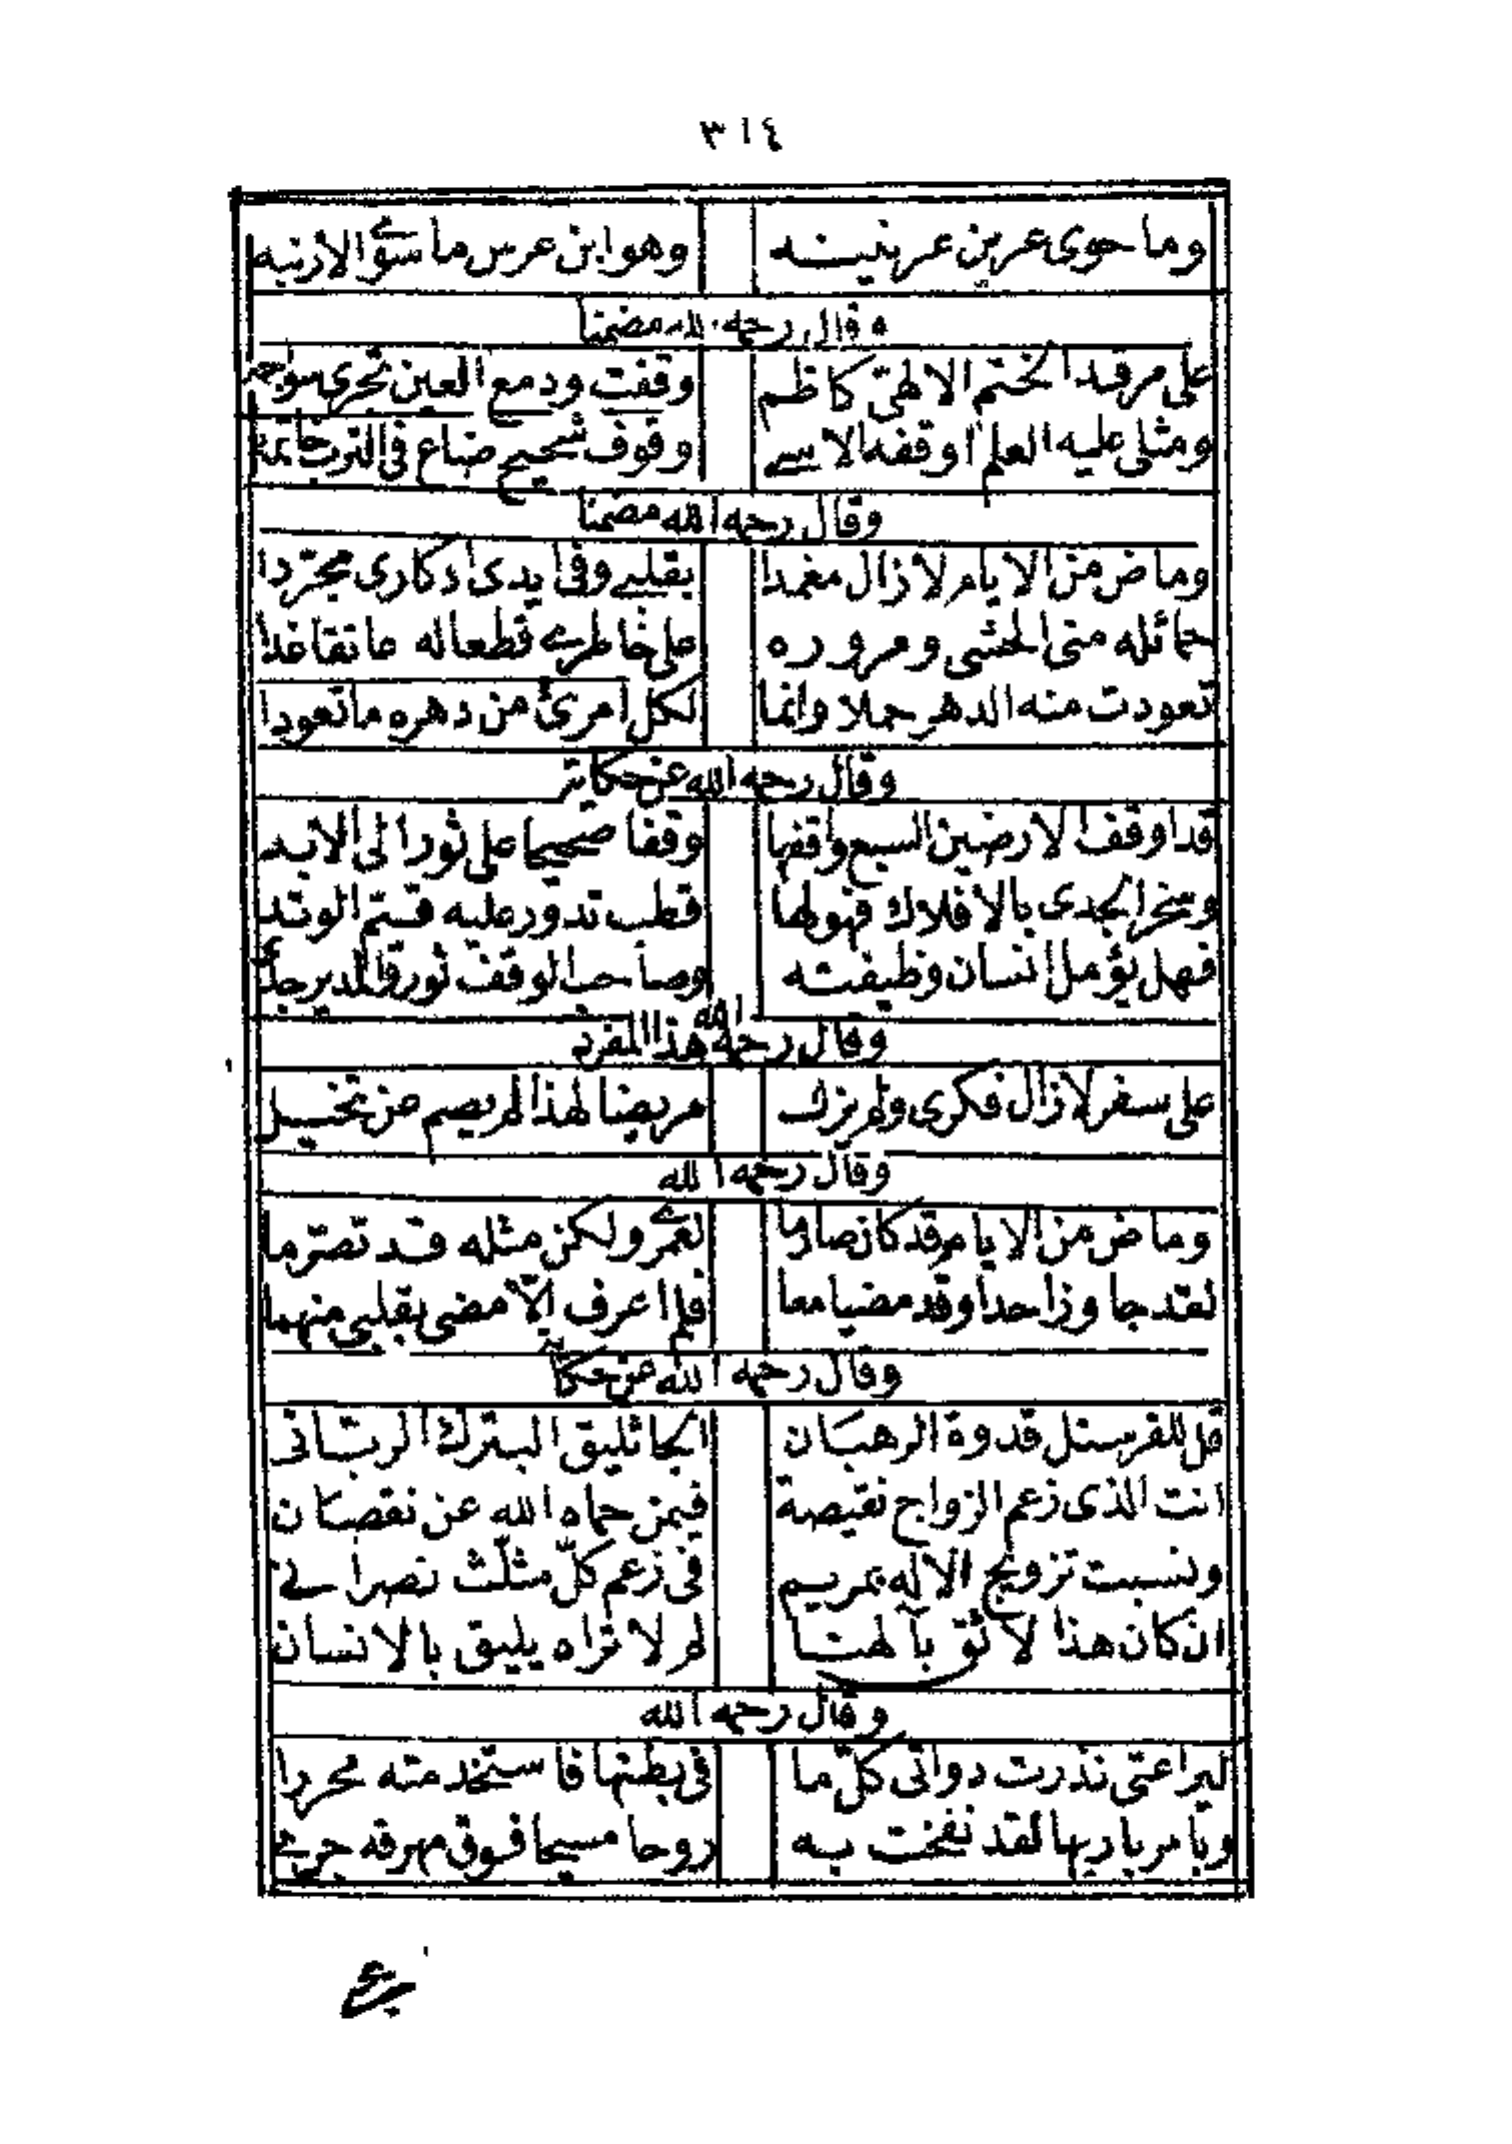 ٣١٤
وما حوى عرين عرنينه وهو ابن عرس ما سوى الارنبه
وقال رحمه الله مضمنا
على مرقد الختم الالهى كاظم وقفت ودمع العين تجرى سواجمه
ومثلى عليه العلم اوقفه الاسى وقوف شحيح ضاع فى الترب خاتمه
وقال رحمه الله مضمنا
وماض من الايام لا زال مغمدا بقلبى وفى ايدى ادكارى مجردا
حمائله متن الحشى ومروره على خاطرى قطعا له ما تقاعدا
تعودت منه الدهر حملا وانما لكل امرئ من دهره ما تعودا
وقال رحمه الله عن حكاية
قد اوقف الارضين السبع واقفها وقفا صحيحا على ثور الى الابد
وسخر الجدى بالافلاك فهو لها قطب تدور عليه قسم الوتد
فهل يؤمل انسان وظيفته وصاحب الوقف ثور والمدير جدى
وقال رحمه الله هذا المفرد
على سفر لا زال فكرى ولم يزل مريضا لهذا لم يصم عن تخيل
وقال رحمه الله
وماض من الايام قد كان صارما لعمرى ولكن مثله قد تصرما
لقد جاوزا حدا وقد مضيا معا فلم اعرف الامضى بقلبى منهما
وقال رحمه الله عن حكاية
قل للفرسنل قدوة الرهبان الجاثليق البترك الربانى
انت الذى زعم الزواج نقيصة فيمن حماه الله عن نقصان
ونسبت تزويج الاله بمريم فى زعم كل مثلث نصرانى
ان كان هذا لائق بآلهنا لم لا تراه يليق بالانسان
وقال رحمه الله
ليراعتى نذرت دواتى كل ما فى بطنها فاستخدمته محررا
وبامر باريها لقد نفخت به روحا مسيحا فوق مهرقه جرى